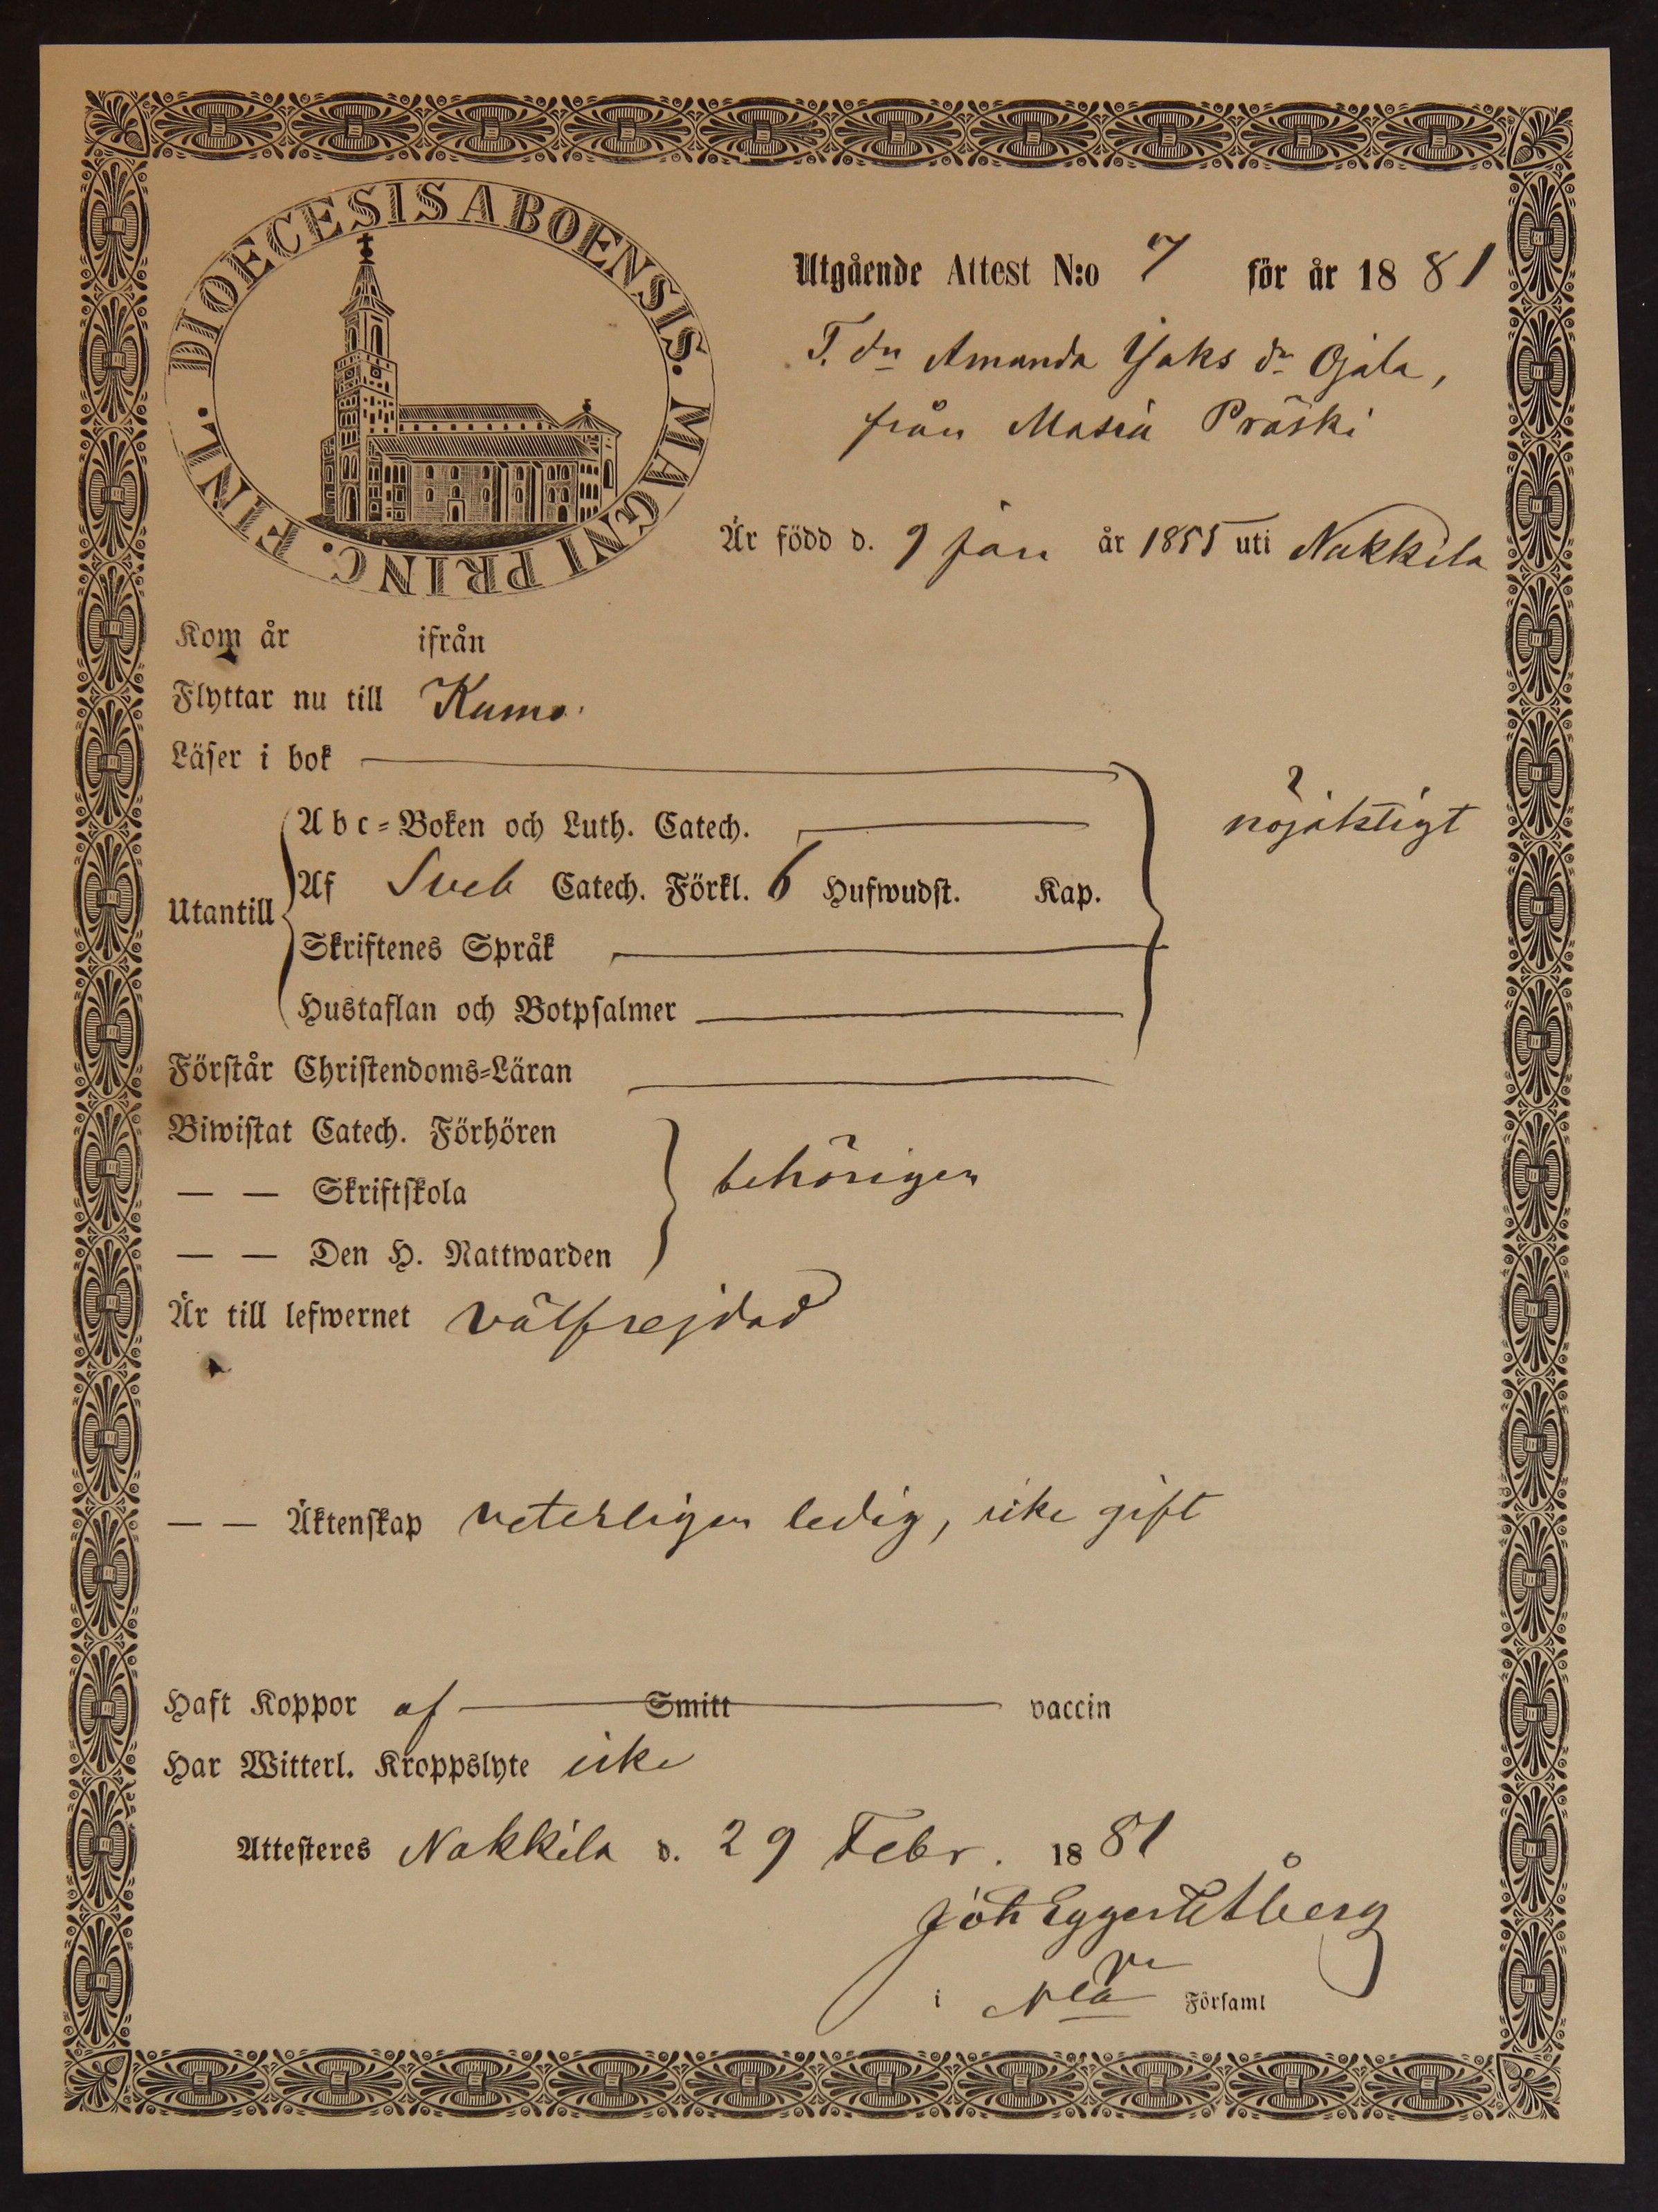 DIOECESIS ABOENSIS. MAGNI PRINC. FINL.
Utgående Attest N:o 7 för år 1881
T. dn Amanda Isaks dr Ojala,
från Masia Präski
Är född d. 9 Jan år 1855 uti Nakkila
Kom år ifrån
Flyttar nu till Kumo.
Läser i bok
nöjaktigt
Abc-Boken och Luth. Catech.
Af Sveb Catech. Förkl. 6 Hufwudst. Kap.
Utantill
Skriftenes Språk
Hustaflan och Botpsalmer
Förstår Christendoms-Läran
Biwistat Catech. Förhören
— — Skriftskola behörigen
— — Den H. Nattwarden
Är till lefwernet välfrejdad
— — Äktenskap veterligen ledig, icke gift
Haft Koppor af Smitt vaccin
Har Witterl. Kroppslyte icke
Attesteres Nakkila d. 29 Febr. 1881
Joh Eggert Åberg
i Nla Församl